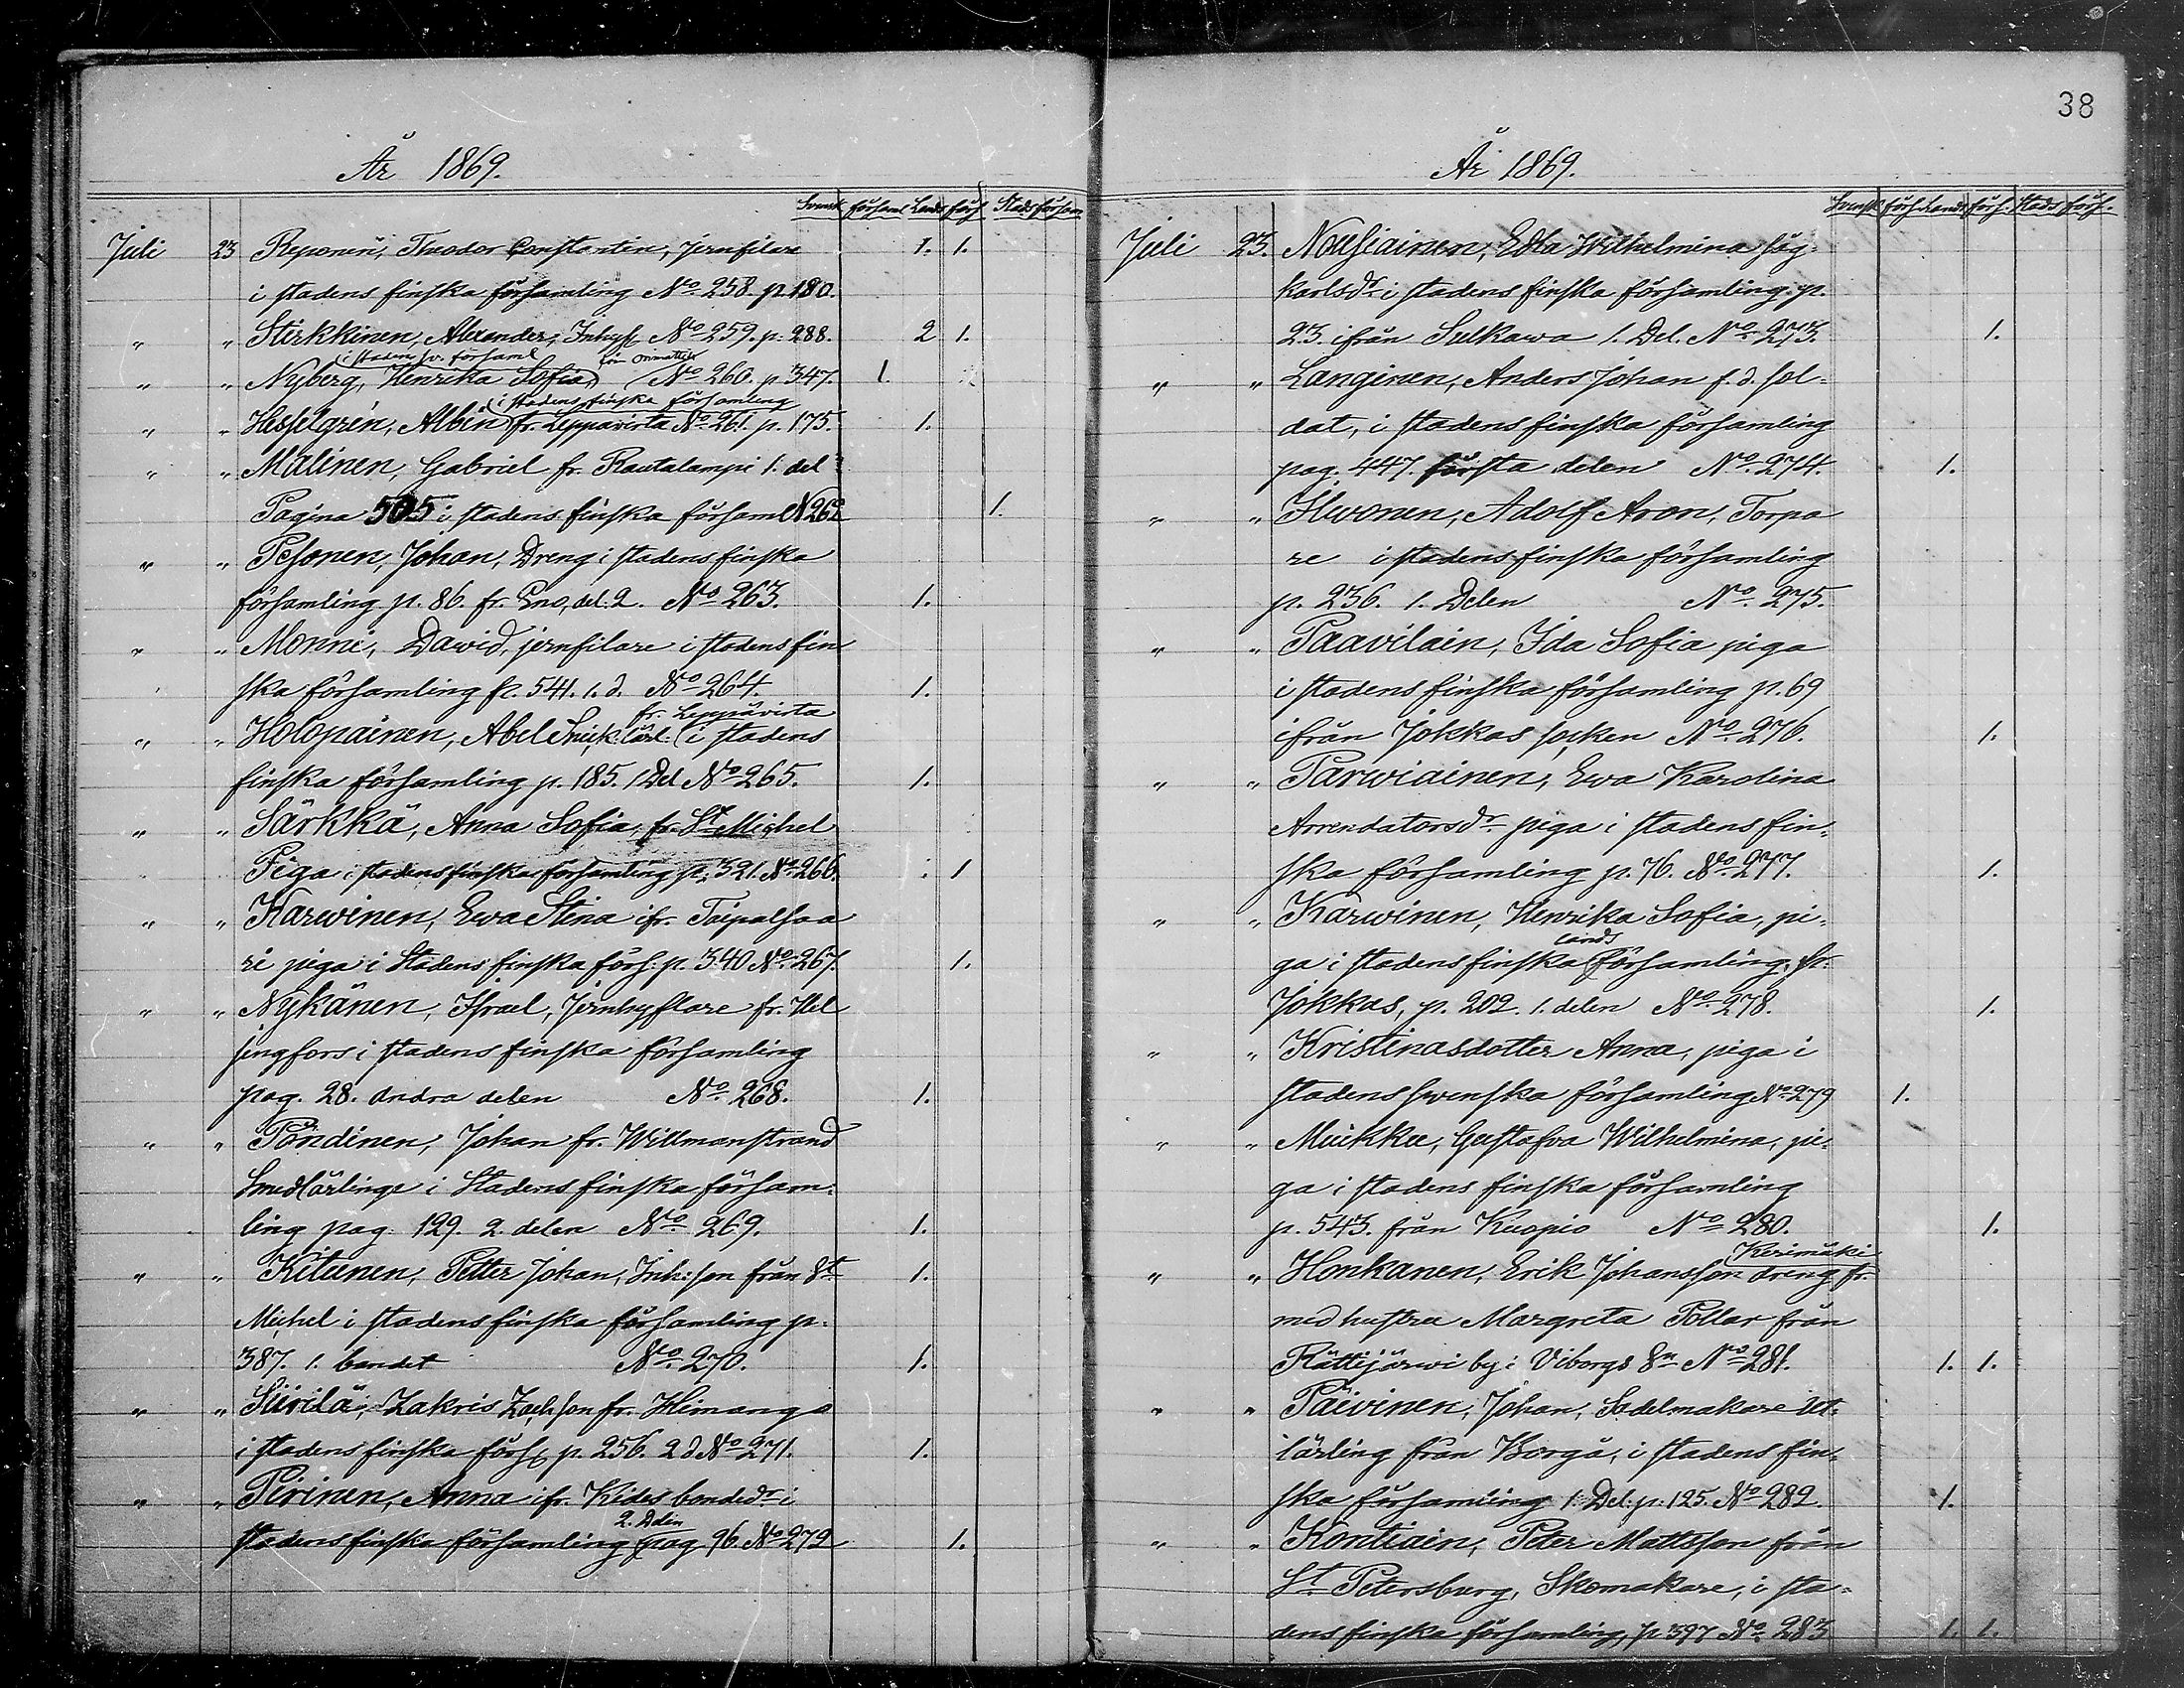 38
År 1869.
Svensk församl Lands förs Stads försam
Juli 23 Reponen, Theodor Constantin, jernfilare 1. 1.
i stadens finska församling No 258. p. 180.
" " Stirkkinen, Alexander, Inhys No 259. p. 288. 2 1.
i stadens sv. församl
" " Nyberg, Henrika Sofia No 260. p 347. 1.
i stadens finska församling
" " Hesselgrén, Albin fr. Leppävirta No 261. p. 175. 1.
" " Malinen, Gabriel fr. Rautalampi 1. del
Pagina 505 i stadens finska församl N 262 1.
" " Pesonen, Johan, Dreng i stadens finska
församling p. 86. fr. Eno, del. 2. No 263. 1.
" " Monni, Dawid, jernfilare i stadens fin
ska församling p. 541. 1. d. No 264. 1.
fr. Leppävirta
" " Holopainen, Abel Snick. lärl. i stadens
finska församling p. 185. 1 Del No 265. 1.
" " Särkkä, Anna Sofia, fr. St Michel
Piga i stadens finska församling p. 321. No 266. 1
" " Karwinen, Ewa Stina ifr. Taipalsaa
ri piga i Stadens finska förs. p. 340 No 267. 1.
" " Nykänen, Israel, Jernhyflare fr. Hel
singfors i stadens finska församling
pag. 28. andra delen No 268. 1.
" " Pöndinen, Johan fr. Willmanstrand
Smedlärlinge i Stadens finska försam-
ling pag. 129. 2. delen No 269. 1.
" " Kitunen, Petter Johan, Inh: son från St 1.
Michel i stadens finska församling p.
387. 1. bandet No 270. 1.
" " Siirilä, Zakris Zachson fr. Himanga
i stadens finska förs p. 256. 2 d No 271. 1.
" " Pirinen, Anna ifr. Kides bondedr i
2. Delen
stadens finska församling pag 96. No 272 1.
År 1869.
Svensk förs. Lands förs. Stads förs.
Juli 23. Nousiainen, Edla Wilhelmina
Karlsdr i stadens finska församling. p.
23. ifrån Sulkawa 1. Del. No 273. 1.
" " Langinen, Anders Johan f. d. sol-
dat, i stadens finska församling
pag. 447. första delen No 274. 1.
" " Ilwonen, Adolf Aron, Torpa
re i stadens finska församling
p. 236. 1. Delen No. 275.
" " Paavilain, Ida Sofia piga
i stadens finska församling p. 69
ifrån Jokkas socken No 276. 1.
" " Parwiainen, Ewa Karolina
Arrendatorsdr piga i stadens fin-
ska församling p. 76. No 277. 1.
" " Karwinen, Henrika Sofia, pi-
lands
ga i stadens finska församling, fr.
Jokkas, p. 202. 1. delen No 278. 1.
" " Kristinasdotter Anna, piga i
stadens swenska församling No 279 1.
" " Muikku, Gustafva Wilhelmina, pi-
ga i stadens finska församling
p. 543. från Kuopio No 280. 1.
Kerimäki
" " Honkanen, Erik Johansson dreng fr.
med hustru Margreta Pollar från
Rättijärwi by i Viborgs Sn No 281. 1. 1.
" " Päivinen, Johan, Sadelmakare ut-
lärling från Borgå, i stadens fin-
ska församling 1 Del. p. 125. No 282. 1.
" " Kontiain, Peter Mattsson från
St Petersburg, Skomakare, i sta-
dens finska församling, p 397 No 283 1. 1.